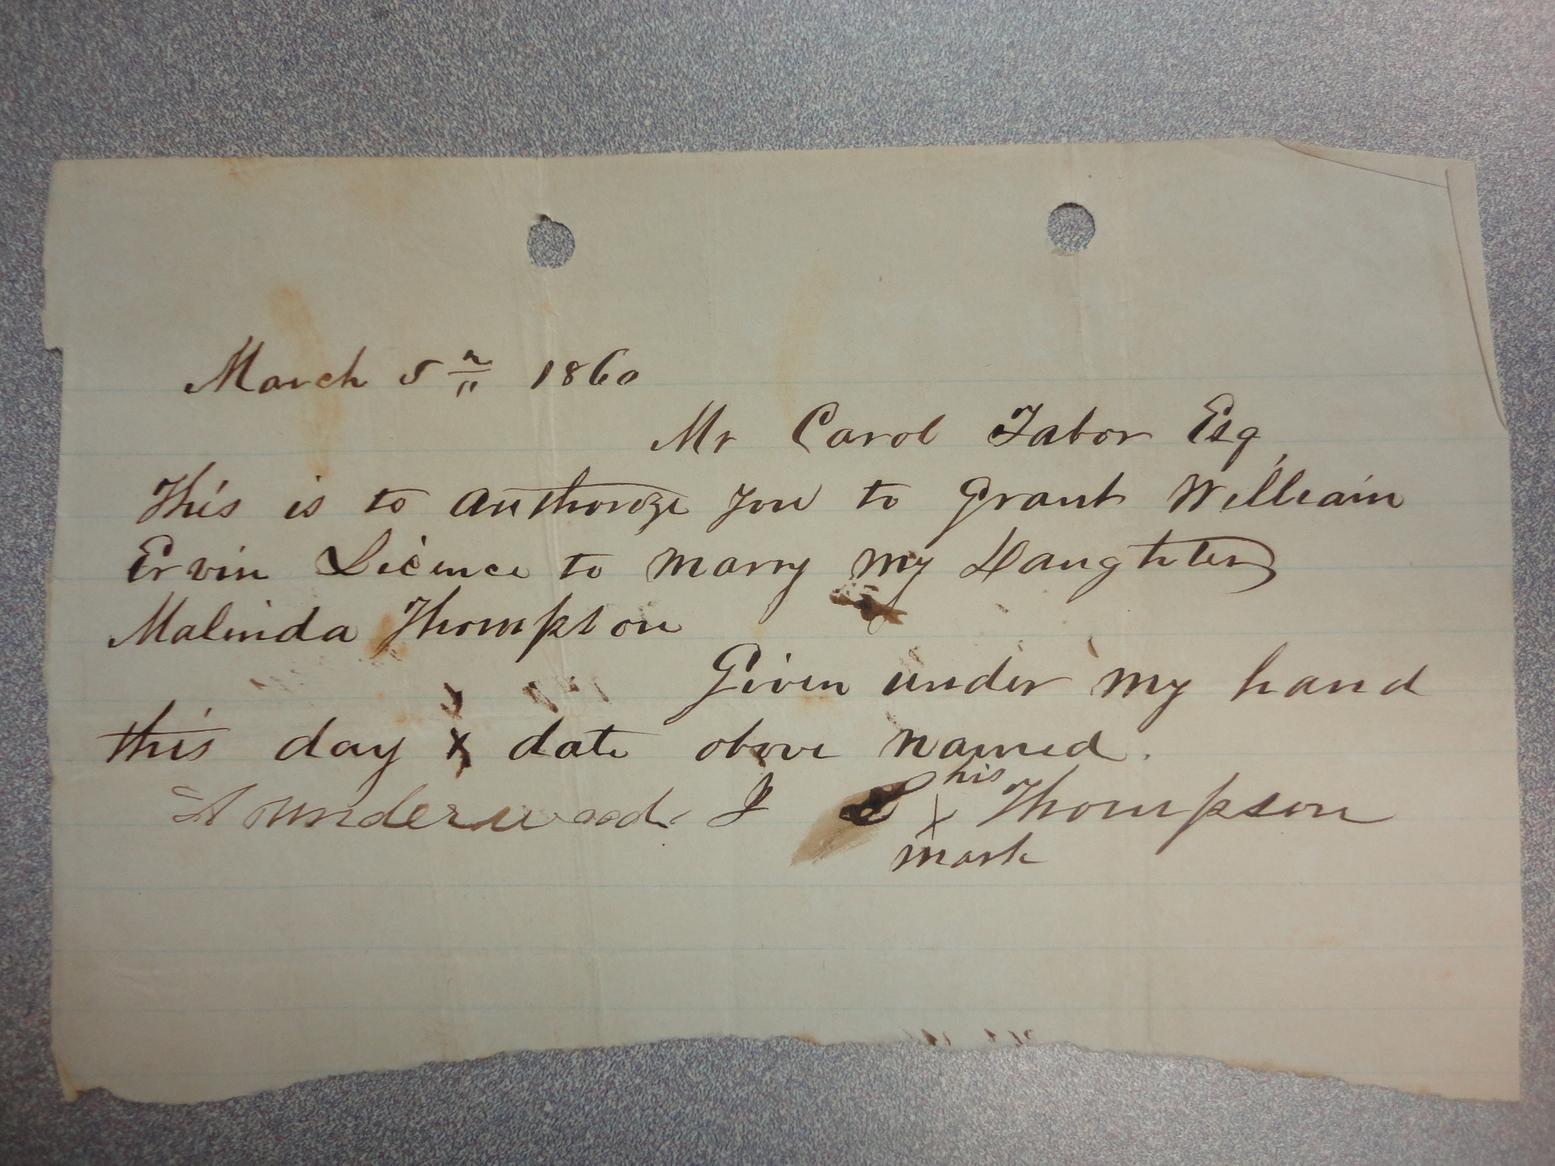 March 5th 1860
Mr Carol Tabor Esq
This is to authorize you to grant William
Ervin Licence to marry my Daughter
Malinda Thompson
Given under my hand
this day & date above named.
A underwood. J his Thompson
x
mark